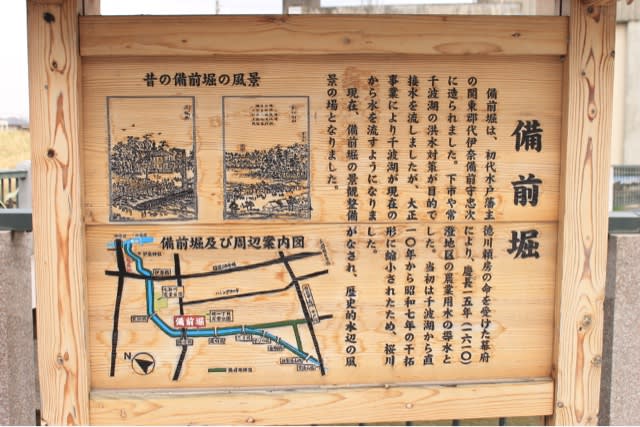 備前堀
備前堀は、初代水戸藩主徳川頼房の命を受けた幕府
の関東郡代伊奈備前守忠次により、慶長一五年(一六一〇)
に造られました。下市や常澄地区の農業用水の導水と
千波湖の洪水対策が目的でした。当初は千波湖から直
接水を流しましたが、大正一〇年から昭和七年の千拓
事業により千波湖が現在の形に縮小されたため、桜川
から水を流すようになりました。
現在、備前堀の景観整備がなされ、歴史的水辺の風
景の場となりました。
昔の備前堀の風景
備前堀及び周辺案内図
備前堀
N